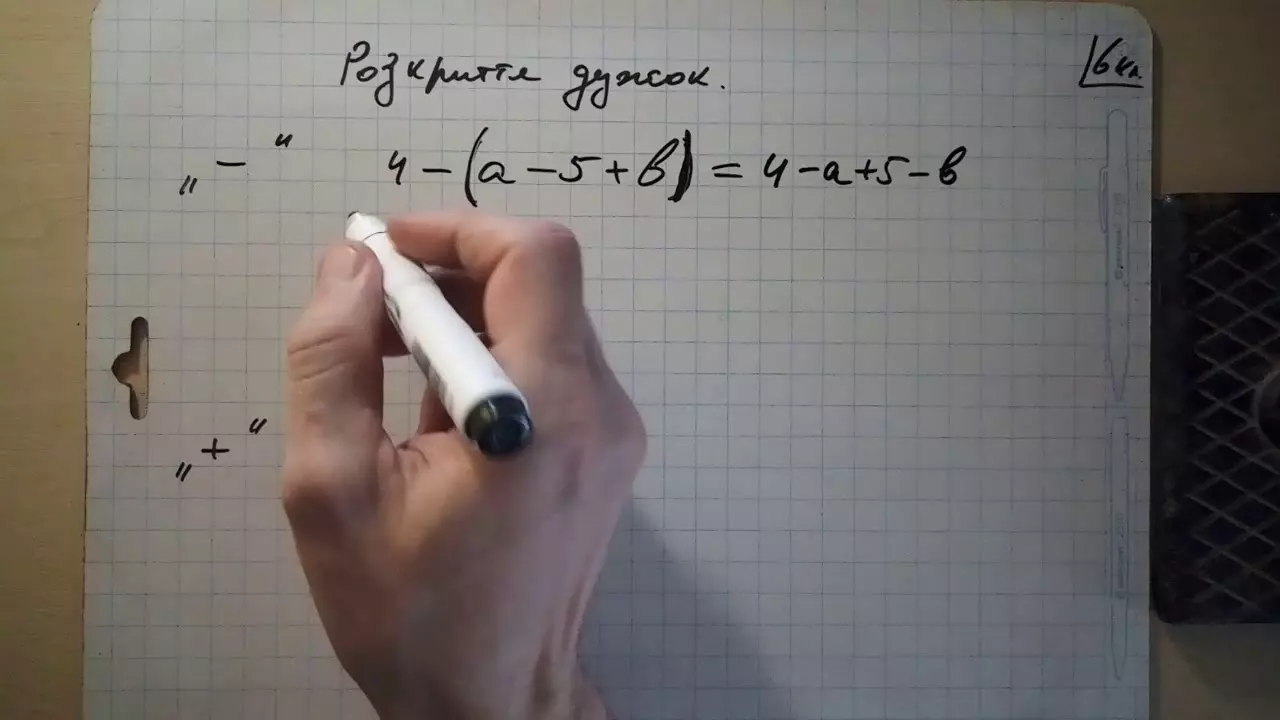 Розкриття дужок.
6 кл.
„ - “ 4 - (a - 5 + b) = 4 - a + 5 - b
„ + “